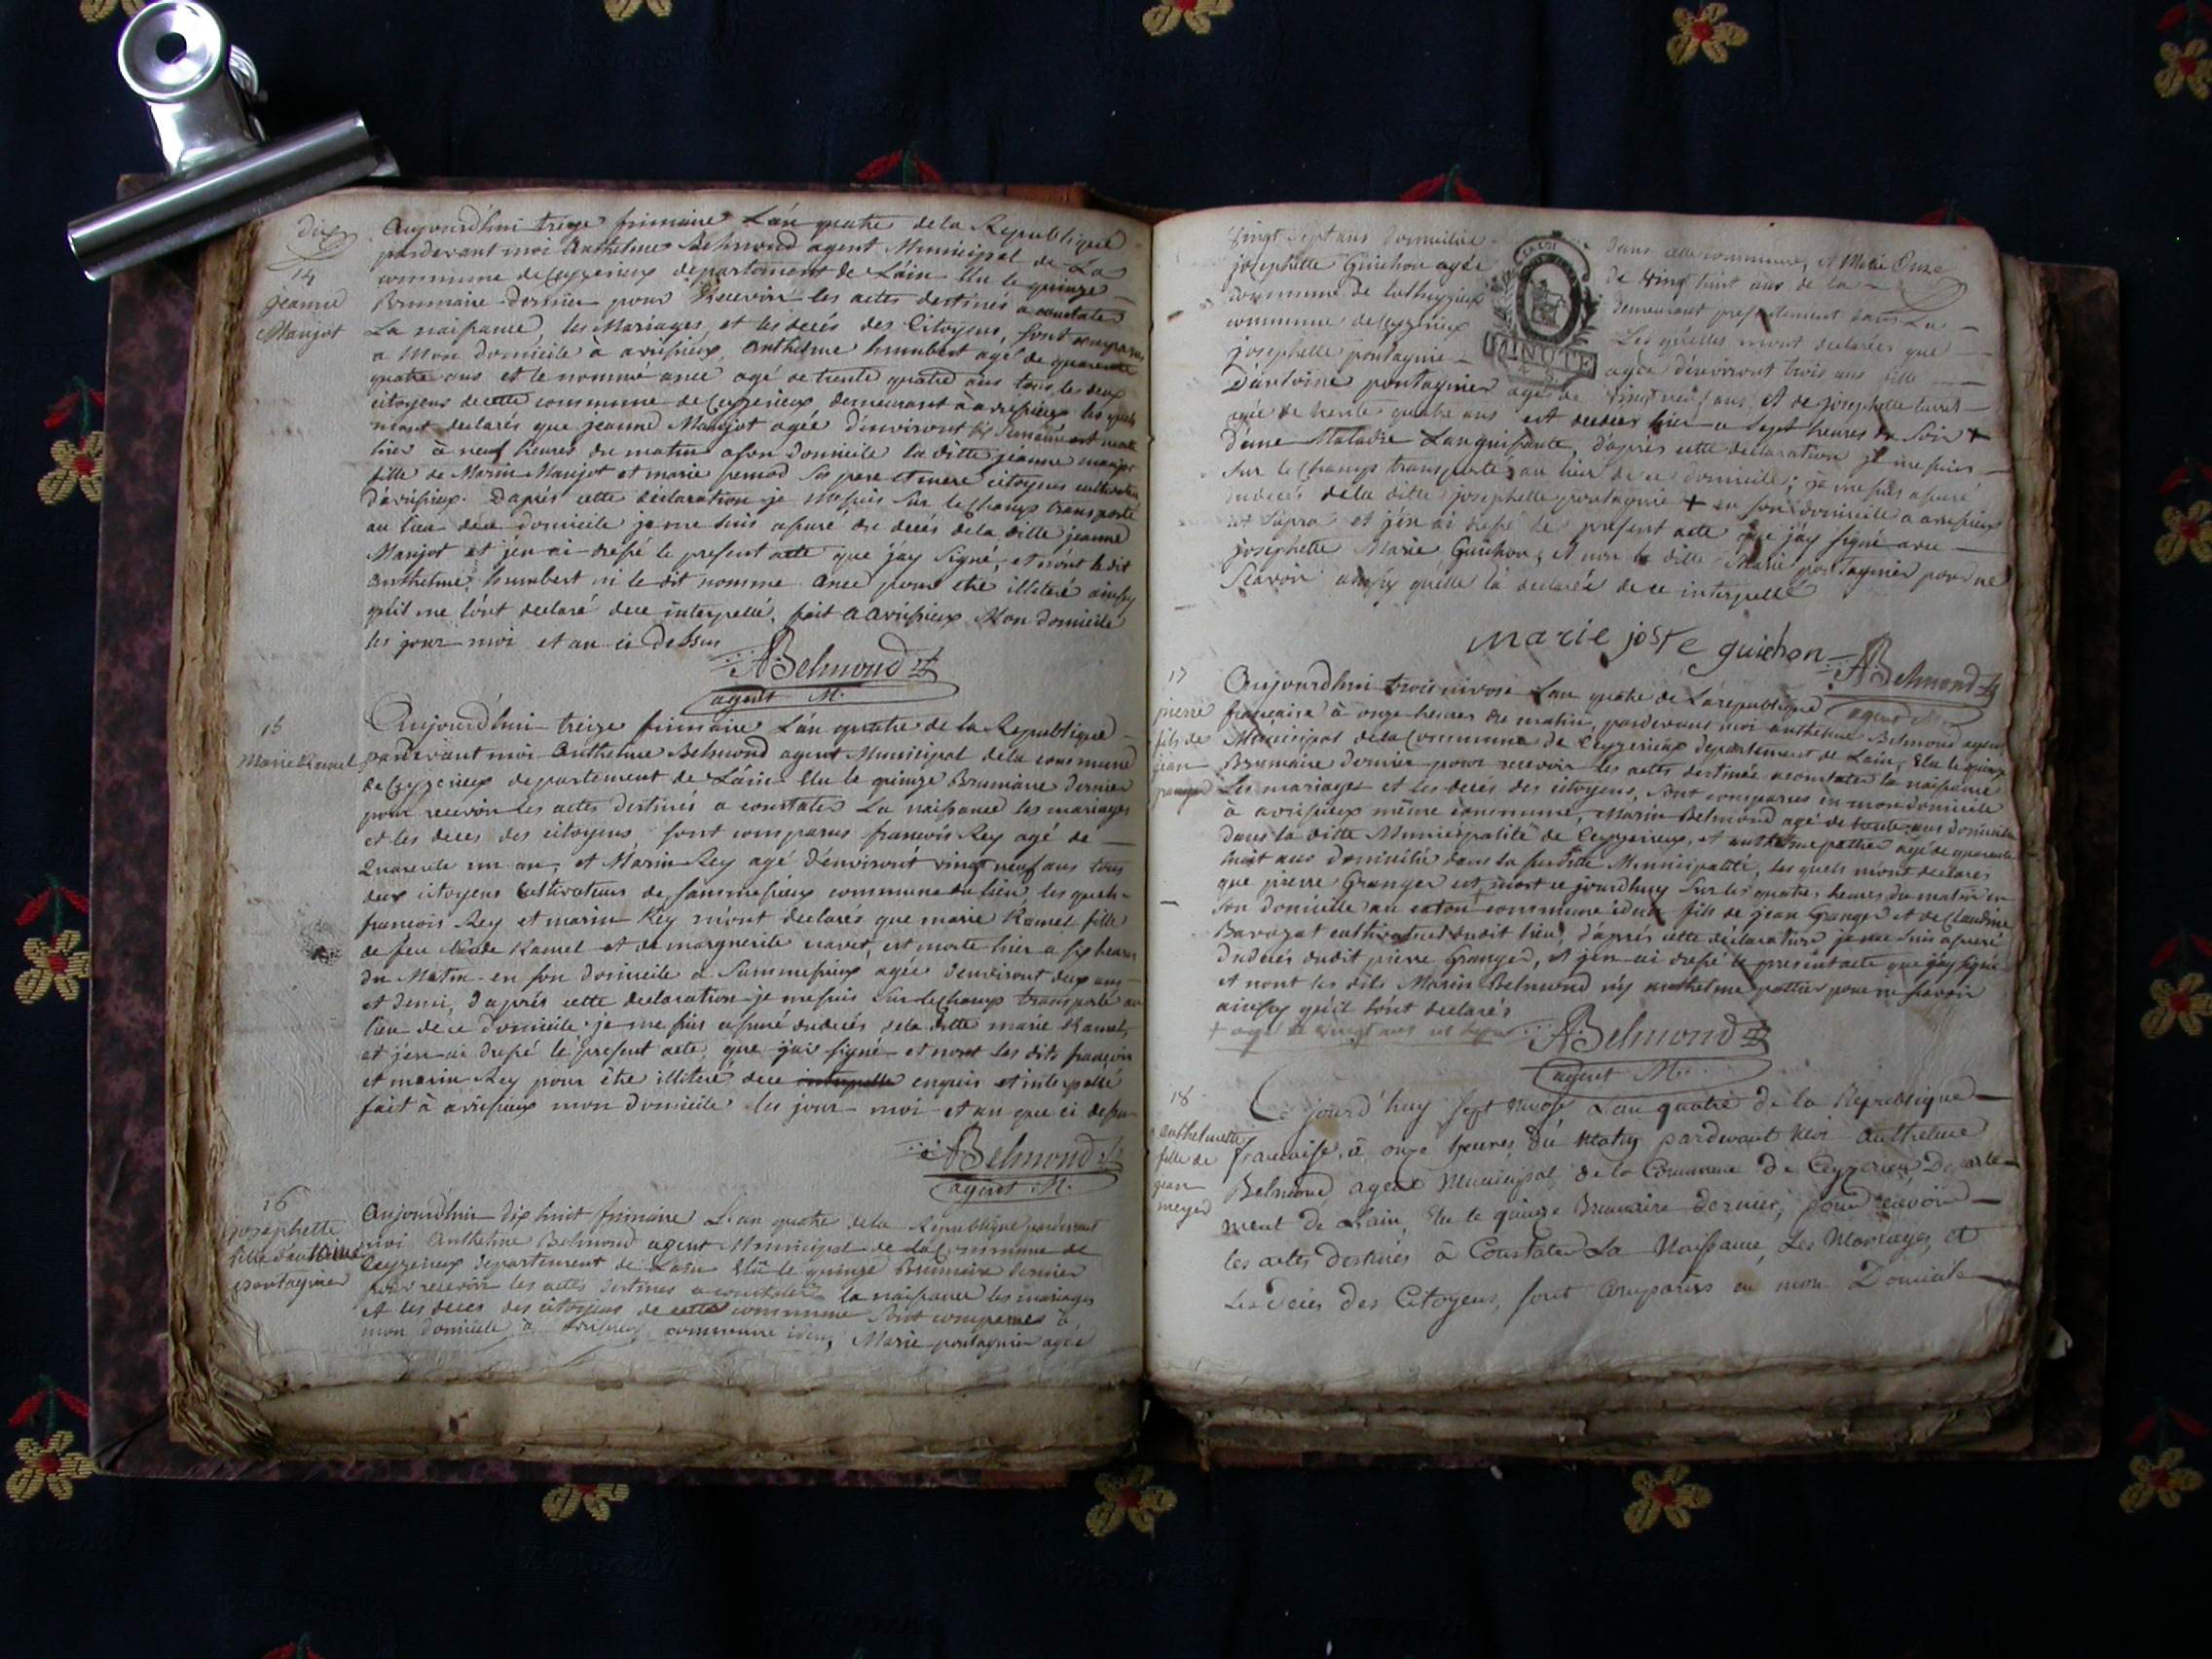 dix
14
jeanne
Manjot
Aujourd'hui treize frimaire L'an quatre de la Republique
pardevant moi Anthelme Belmond agent Municipal de La
commune de Ceyzerieux departement de L'ain Elu le quinze
Brumaire dernier pour Recevoir les actes destinés a constater
La naissance, les Mariages, et les decés des Citoyens, sont comparus
a Mon domicile à avrissieux, anthelme humbert agé de quarente
quatre ans et le nommé ance agé de trente quatre ans tous les deux
citoyens de cette commune de Ceyzerieux demeurant à avrissieux les quels
m'ont declarés que jeanne Manjot agée d'environt six semaine est morte
hier à neuf heures du matin a son domicile la ditte jeanne manjot
fille de Marin Manjot et marie ses pere et mere citoyens cultivateurs
d'avrissieux. D'aprés cette declaration je me suis sur le champ transporté
au lieu de ce domicile je me suis assuré du decés de la ditte jeanne
Manjot et j'en ai dressé le present acte que j'ay signé, et n'ont le dit
anthelme humbert ni le dit nomme ance pour etre illiteré ainsy
qu'il me l'ont declaré de ce interpellé, fait a avrissieux Mon domicile
les jour moi et an ci dessus
ABelmond
agent M.
15
Marie Ramel
Aujourd'hui treize frimaire L'an quatre de la Republique
pardevant moi Anthelme Belmond agent Municipal de la commune
de Ceyzerieux departement de L'ain Elu le quinze Brumaire dernier
pour recevoir les actes destinés a constater La naissance les mariages
et les deces des citoyens sont comparus francois Rey agé de
Quarente un an, et Marin Rey agé d'environt vingt neuf ans tous
deux citoyens Cultivateurs de sammesieux commune du lieu, les quels
francois Rey et marin Rey m'ont declarés que marie Ramel fille
de feu Claude Ramel et de marguerite navet, est morte hier a six heures
du Matin en son domicile a Sammesieux agée d'environt deux ans
et demi, d'aprés cette declaration je me suis Sur le champ transporté au
lieu de ce domicile je me suis assuré du decés de la ditte marie Ramel,
et j'en ai dressé le present acte, que j'ai signé et n'ont les dits françois
et marin Rey pour être illiteré de ce interpellé enquis et interpellé
fait à avrissieux mon domicile les jour moi et an que ci dessu
ABelmond
agent M.
16
josephette
fille d'antoine
pontagnier
Aujourd'hui dix huit frimaire L'an quatre de la Republique pardevant
moi Anthelme Belmond agent Municipal de la Commune de
Ceyzerieux departement de L'ain Elu le quinze Brumaire dernier
pour recevoir les actes destinés a constater la naissance les mariages
et les deces des citoyens de cette commune Sont comparues à
mon domicile à avrissieux commune idem, Marie pontagnier agée
vingt sept ans domiciliée dans cette commune, et Marie
josephette Guichon agée de vingt huit ans de la
commune de demeurant presentement dans La
commune de Ceyzerieux Les quelles m'ont declarées que
josephette pontagnie agée d'environt trois ans fille
D'antoine pontagnier agé de vingt neuf ans, et de josephette
agée de trente quatre ans est decedée hier a Sept heures du Soir +
d'une Maladie Languissante, d'aprés cette declaration je me suis
sur le champ transporté au lieu de ce domicile, je me suis assuré
du decés de la ditte josephette pontagnie + en son domicile a avrissieux
ut supra et j'en ai dressé le present acte que j'ay signé avec
josephette Marie Guichon, et non la ditte Marie pontagnier pour ne
Scavoir ainsy qu'elle la declarée de ce interpellé
MINUTE
marie joste guichon
ABelmond
agent M.
17
pierre
fils de
jean
granger
Aujourd'hui trois nivose L'an quatre de La republique
française à onze heures du matin, pardevant moi anthelme Belmond agent
Municipal de la Commune de Ceyzerieux departement de Lain, Elu le quinze
Brumaire dernier pour recevoir Les actes destinés a constater la naissance
Les mariages et les decés des citoyens, sont comparus en mon domicile
à avrissieux même commune, Marin Belmond agé de trente ans domicilié
dans la ditte Municipalité de Ceyzerieux, et anthelme pattier agé de quarante
huit ans domicilié dans la susditte Municipalité, les quels m'ont declarés
que pierre Granger est mort ce jourdhuy Sur les quatre heures du matin en
son domicile au commune idem fils de jean Granger et de Claudine
Baraxat cultivateur dudit lieu, d'aprés cette declaration je me suis assuré
du decés dudit pierre Granger, et j'en ai dressé le present acte que j'ay signé
et n'ont les dits Marin Belmond n'y anthelme pattier pour ne scavoir
ainsy qu'il l'ont declarés
+ agé de vingt ans
ABelmond
agent M.
18
anthelmette
fille de
jean
meyer
Ce jourd'huy sept nivose L'an quatre de la Republique
francaise, à onze heures du matin pardevant Moi Anthelme
Belmond agent Municipal de la Commune de Ceyzerieu Departe-
ment de L'ain, Elu le quinze Brumaire dernier, pour recevoir
les actes destinés à Constater La Naissance, Les Mariages, et
Les decés des Citoyens, sont Comparus en mon Domicile